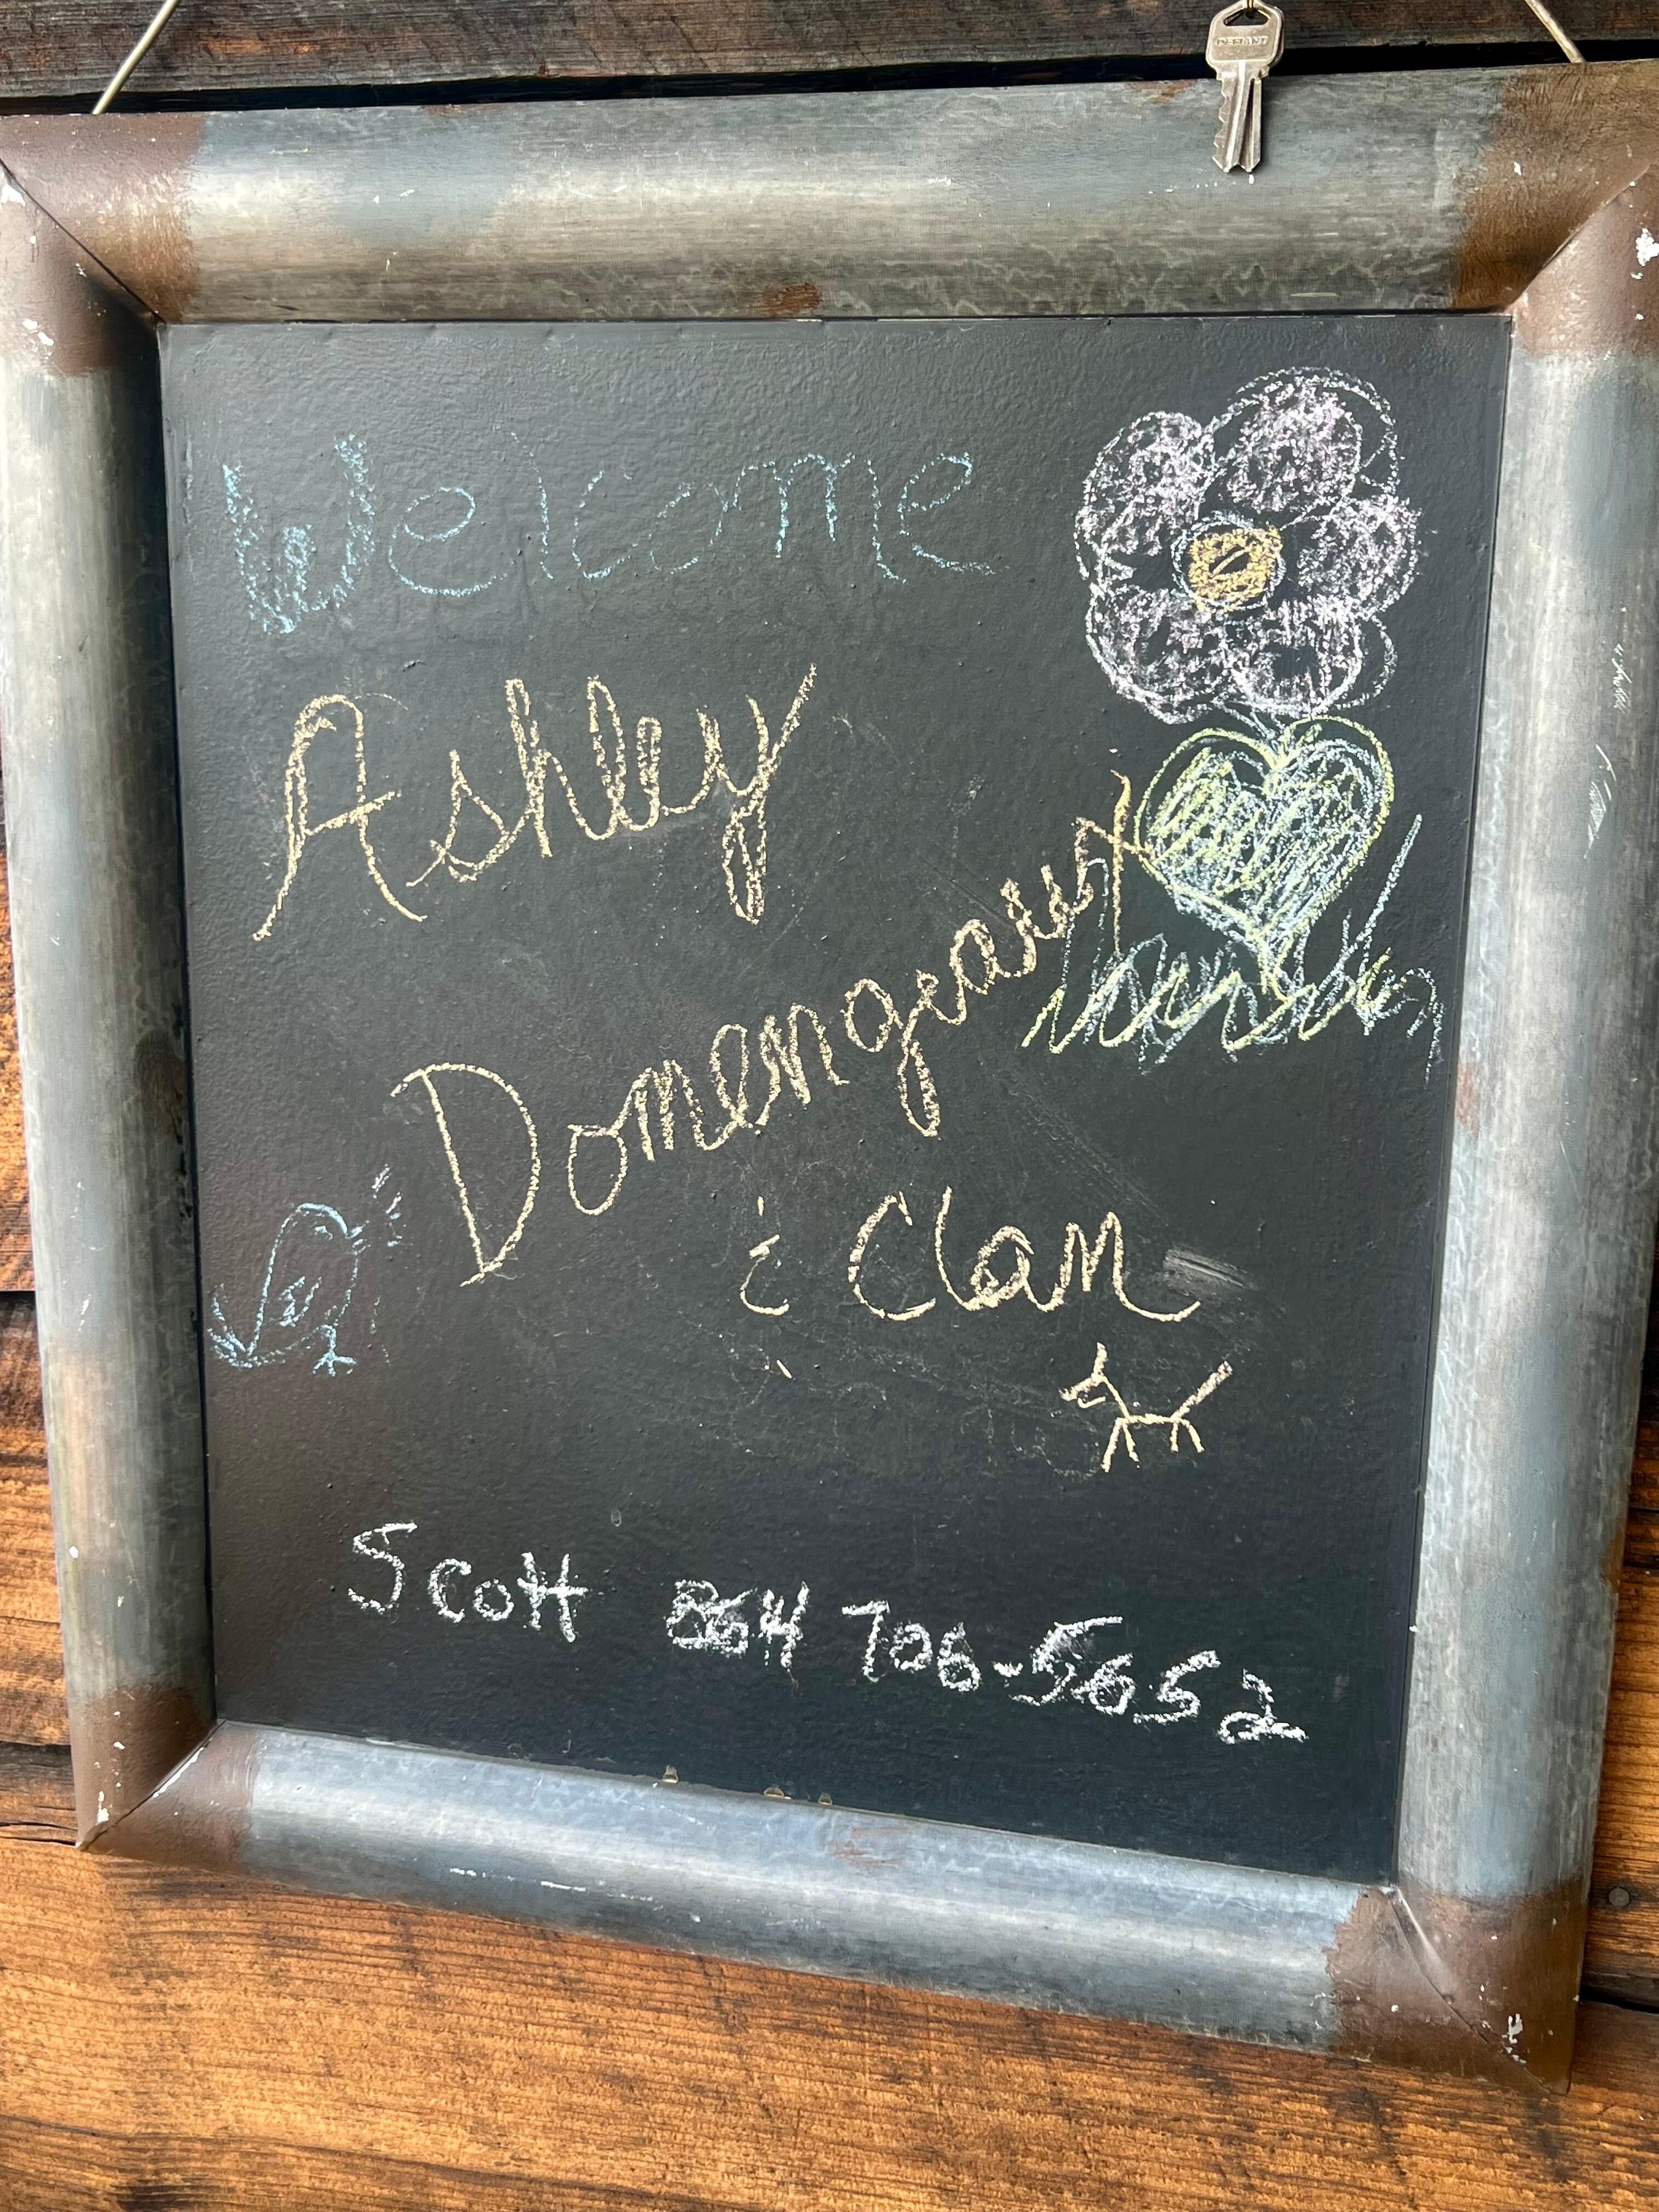 DEFIANT
Welcome
Ashley
Domengeaux
& Clan
Scott 864 706-5652